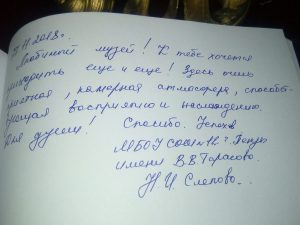 11.2018г.
Любимый музей! К тебе хочется
приходить еще и еще! Здесь очень
приятная, камерная атмосфера, способст-
вующая восприятию и наслаждению
для души!
Спасибо. Успехов
МБОУ СОШ №12 г. Пензы
имени В.В. Тарасова
Н.И.